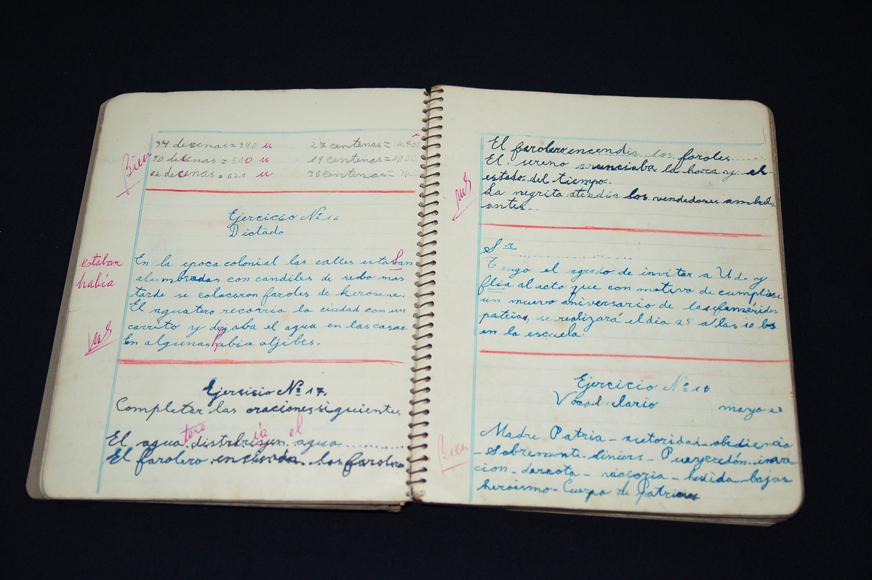 Bien
34 decenas = 340 u 27 centenas =
decenas = 500 u 19 centenas = 1900
62 decenas = 620 36 centenas =
Ejercicio Nº 16
Dictado
estaban
había
En la epoca colonial las calles estaban
alumbradas con candiles de sebo mas
tarde se colocaron faroles de kerosene.
El aguatero recorria la ciudad con un
carrito y dejaba el agua en las casas.
En algunas habia aljibes.
Ejersicio Nº 17
Completar las oraciones siguientes
tero ía el
El agua distribuian agua
El farolero encendia los faroles
El farolero encendia los faroles
El sereno anunciaba la hora y el
estado del tiempo.
La negrita los vendedores ambul
antes.
Sr
Tengo el agrado de invitar a Ud. y
flia al acto que con motivo de cumplirse
un nuevo aniversario de las efemérides
patrias, se realizará el dia 25 a las 10 hs
en la escuela
Ejercicio Nº 18
Vocabulario mayo 2
Bien
Madre Patria - autoridad - obediencia
- Sobremonte - Liniers - Pueyrredón - inva
cion - derrota - - huida - bajas
heroismo - Cuerpo de Patricios